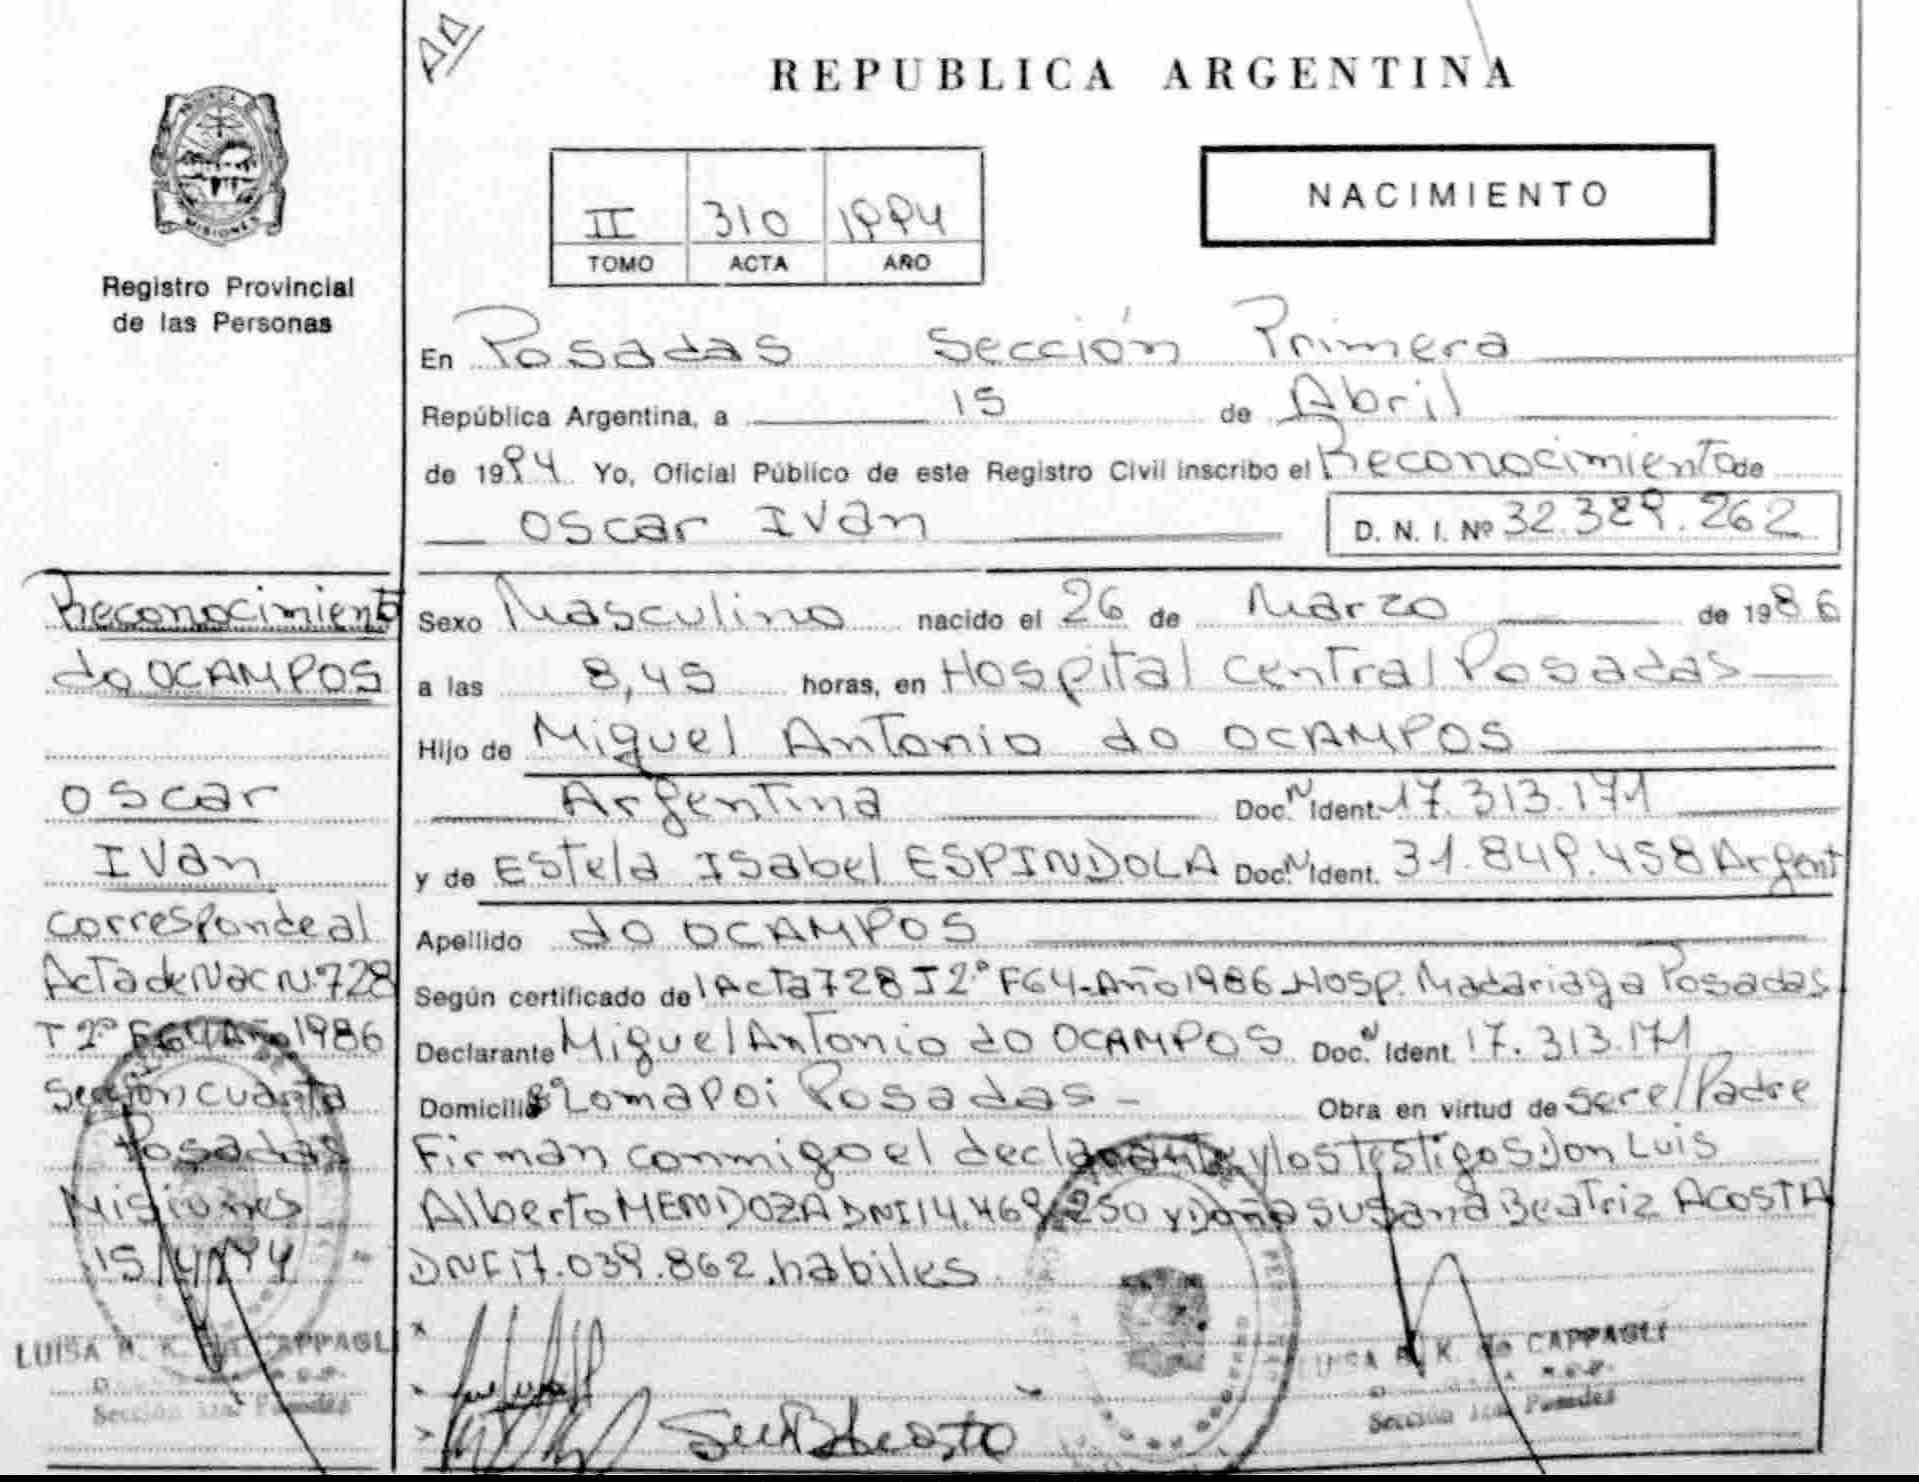 REPUBLICA ARGENTINA
MISIONES
Registro Provincial
de las Personas
II 310 1994
TOMO ACTA AÑO
NACIMIENTO
En Posadas Sección Primera
República Argentina, a 15 de Abril
de 1994 Yo, Oficial Público de este Registro Civil inscribo el Reconocimiento de
Oscar Ivan D. N. I. Nº 32.389.262
Sexo Masculino nacido el 26 de Marzo de 1986
a las 8,45 horas, en Hospital Central Posadas
Hijo de Miguel Antonio do OCAMPOS
Argentina Doc. N Ident. 17.313.171
y de Estela Isabel ESPINDOLA Doc. N Ident. 31.849.458 Argent
Apellido do OCAMPOS
Según certificado de l Acta 728 T2º F64-Año 1986 Hosp. Madariaga Posadas
Declarante Miguel Antonio do OCAMPOS Doc. N Ident 17.313.171
Domicilio Lomapoi Posadas - Obra en virtud de ser el Padre
Firman conmigo el declarante y los testigos don Luis
Alberto MENDOZA DNI 14.469.250 y Doña Susana Beatriz ACOSTA
DNI 17.039.862. habiles
Reconocimiento
do OCAMPOS
Oscar
Ivan
corresponde al
Acta de Nac N.728
T 2º F64 Año 1986
Sección cuarta
Posadas
Misiones
15/4/94
LUISA B. K. de CAPPAGLI
Sección 1ra. Posadas
LUISA B. K. de CAPPAGLI
Sección 1ra. Posadas